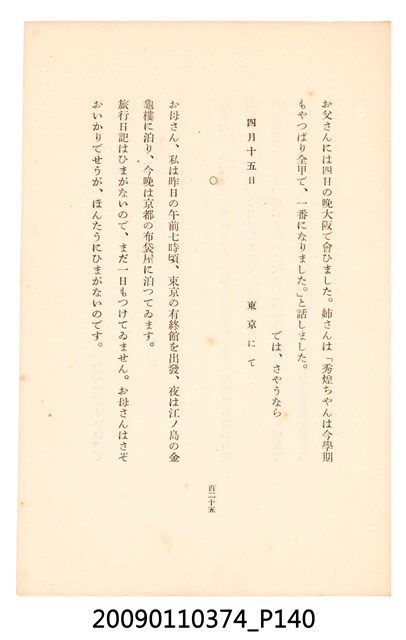 お父さんには四日の晩大阪で會ひました。姉さんは「秀煌ちやんは今學期
もやつぱり全甲で、一番になりました。」と話しました。
では、さやうなら
四月十五日　東京にて
○
お母さん、私は昨日の午前七時頃、東京の有終館を出發、夜は江ノ島の金
龜樓に泊り、今晩は京都の布袋屋に泊つてゐます。
旅行日記はひまがないので、まだ一日もつけてゐません。お母さんはさぞ
おいかりでせうが、ほんたうにひまがないのです。
百二十五
20090110374_P140